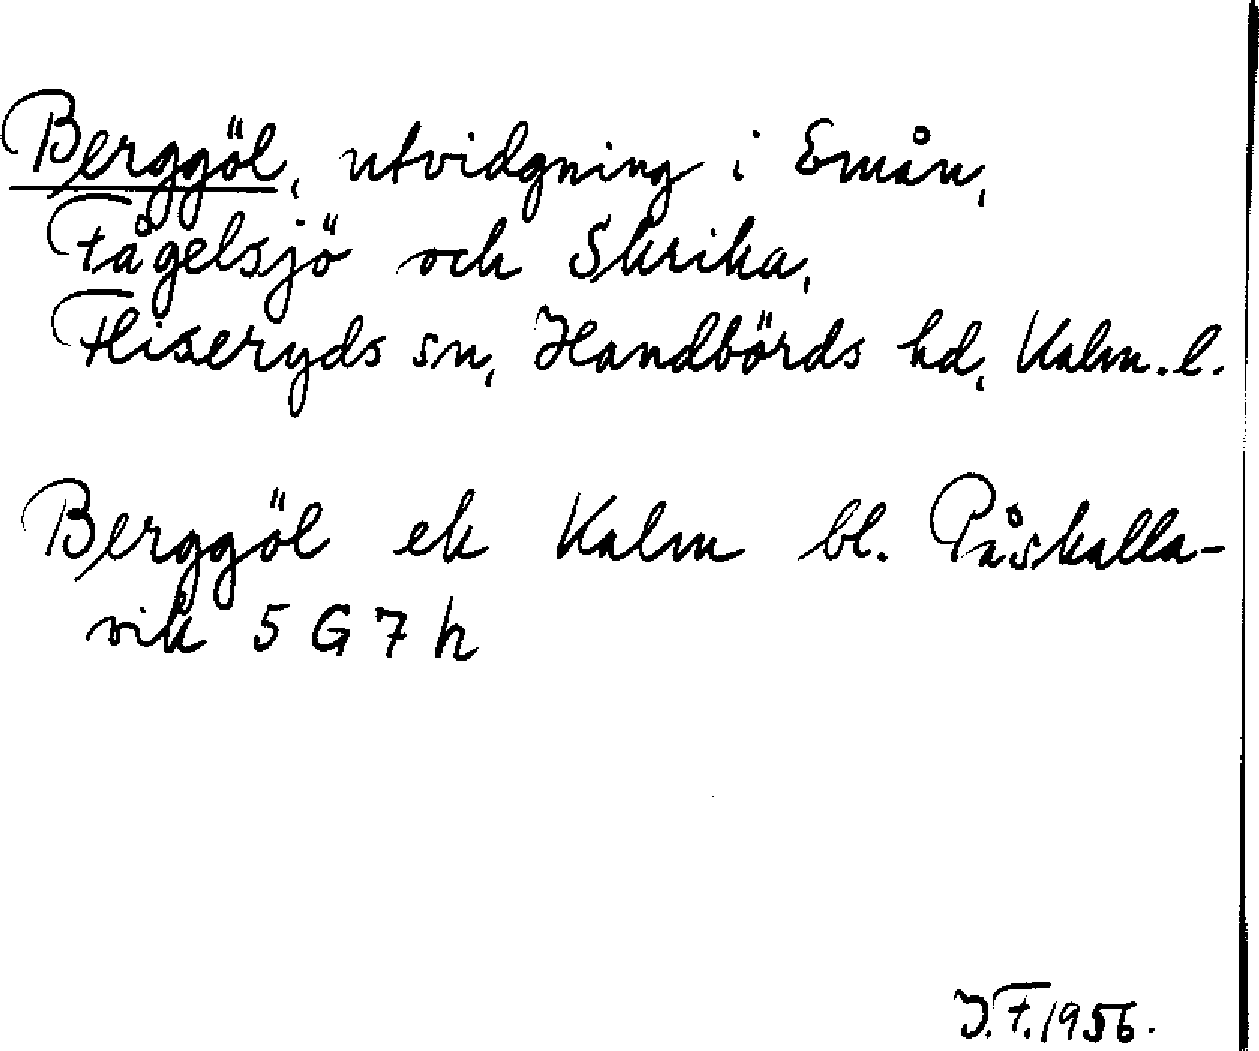 Berggöl, utvidgning i Emån,
Fågelsjö och Skrika,
Fliseryds sn, Handbörds hd, Kalm. l.
Berggöl ek Kalm bl. Påskalla-
vik 5 G 7 h
J.F. 1956.